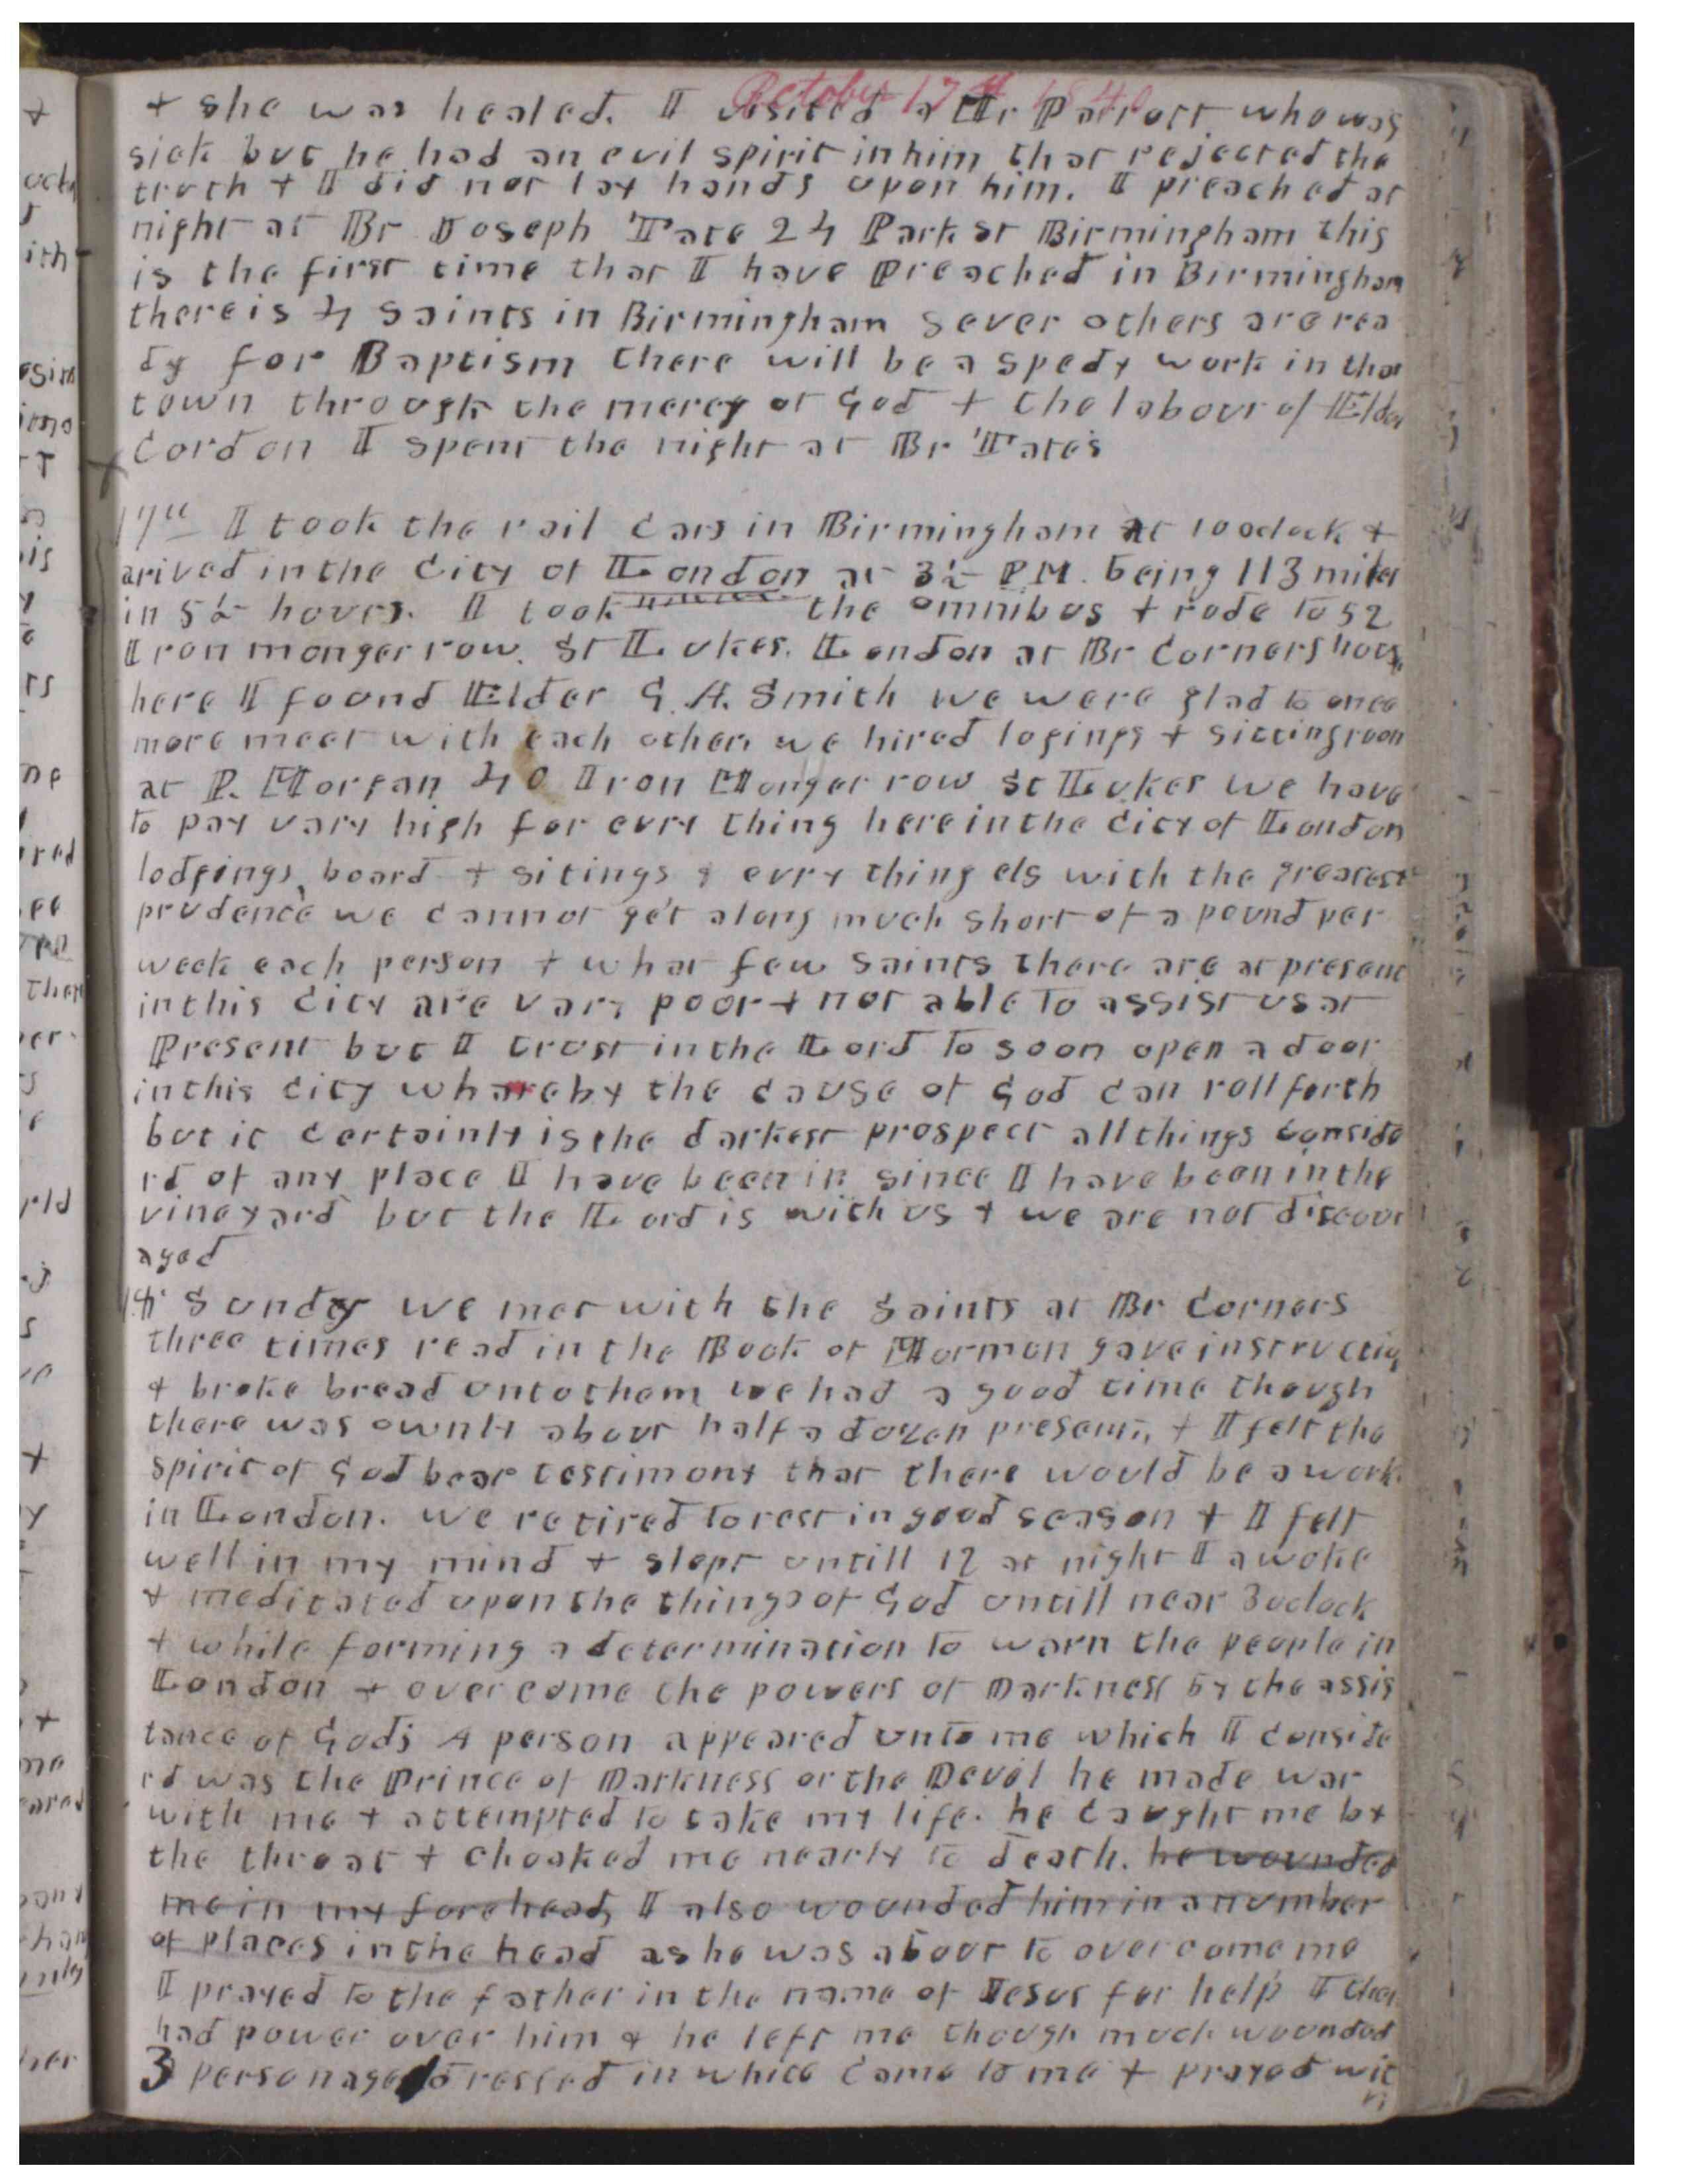 October 17th 1840
+ she was healed. I visited a Mr Parrott who was
sick but he had an evil spirit in him that rejected the
truth + I did not lay hands upon him. I preached at
night at Br Joseph Tate 24 Park st Birmingham this
is the first time that I have Preached in Birmingham
there is 4 Saints in Birmingham sever others are rea
dy for Baptism there will be a spedy work in that
town through the mercy of God + the labour of Elder
Cordon I spent the night at Br Tate's
17th I took the rail cars in Birmingham at 10 oclock +
arived in the City of London at 3½ P.M. being 113 miles
in 5½ hours. I took the omnibus + rode to 52
Iron monger row. St Lukes. London at Br Corners hous
here I found Elder G. A. Smith we were glad to once
more meet with each other. we hired logings + sitting room
at P. Morgan 40 Iron Monger row St Lukes We have
to pay vary high for evry thing here in the City of London
lodgings, board + sitings & evry thing els with the greatest
prudence we cannot get along much short of a pound per
week each person + what few Saints there are at present
in this City are vary poor + not able to assist us at
Present but I trust in the Lord to soon open a door
in this City whareby the cause of God can roll forth
but it certainly is the darkest prospect all things conside
rd of any place I have been in since I have been in the
vineyard but the Lord is with us + we are not discour
aged
18th Sunday we met with the Saints at Br Corners
three times read in the Book of Mormon gave instructio
+ broke bread unto them we had a good time though
there was ownly about half a dozen present, + I felt the
spirit of God bear testimony that there would be a work
in London. we retired to rest in good season + I felt
well in my mind + slept untill 12 at night I awoke
+ meditated upon the things of God untill near 3 oclock
+ while forming a determination to warn the people in
London + overcome the powers of Darkness by the assis
tance of God; A person appeared unto me which I conside
rd was the Prince of Darkness or the Devel he made war
with me + attempted to take my life. he caught me by
the throat + choaked me nearly to death. he wounded
me in my forehead, I also wounded him in a number
of places in the head as he was about to overcome me
I prayed to the father in the name of Jesus for help I then
had power over him & he left me though much wounded
3 personages dressed in white came to me + prayed wit
h